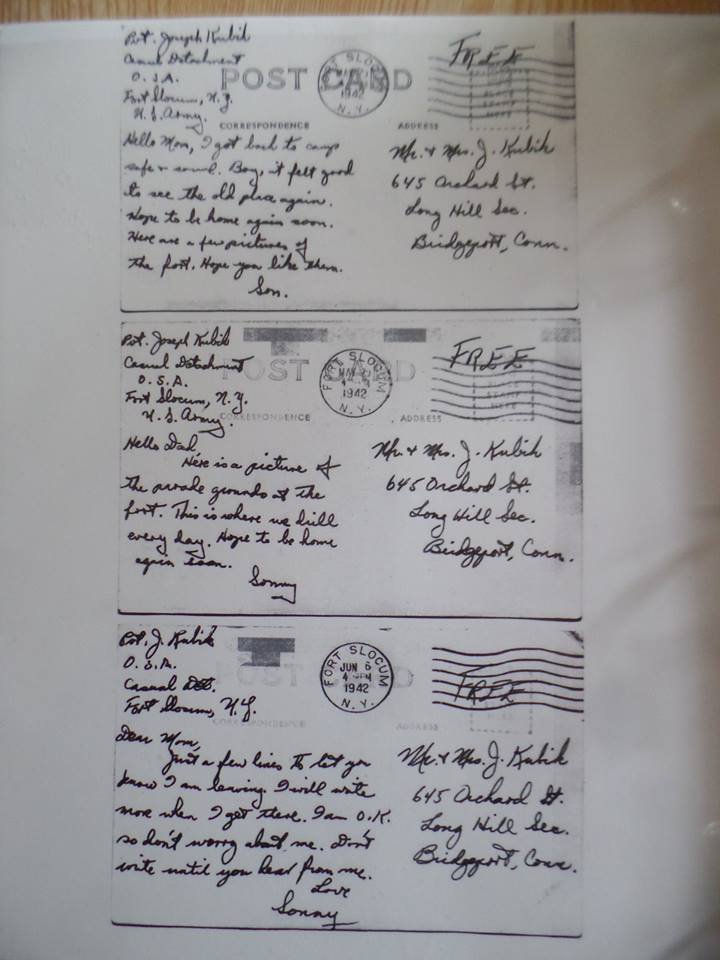 Pvt. Joseph Kubik
Casual Detachment
O. S. A.
Fort Slocum, N.Y.
U. S. Army.
POST CARD
FORT SLOCUM
1942
N.Y.
FREE
PLACE
STAMP
HERE
CORRESPONDENCE
ADDRESS
Hello Mom, I got back to camp
safe & sound. Boy, it felt good
to see the old place again.
Hope to be home again soon.
Here are a few pictures of
the fort. Hope you like them.
Son.
Mr. & Mrs. J. Kubik
645 Orchard St.
Long Hill Sec.
Bridgeport, Conn.
Pvt. Joseph Kubik
Casual Detachment
O. S. A.
Fort Slocum, N.Y.
U. S. Army.
POST CARD
FORT SLOCUM
MAY
1942
N.Y.
FREE
PLACE
STAMP
HERE
CORRESPONDENCE
ADDRESS
Hello Dad
Here is a picture of
the parade grounds at the
fort. This is where we drill
every day. Hope to be home
again soon.
Sonny
Mr. & Mrs. J. Kubik
645 Orchard St.
Long Hill Sec.
Bridgeport, Conn.
Pvt. J. Kubik
O. S. A.
Casual Det.
Fort Slocum, N.Y.
POST CARD
FORT SLOCUM
JUN 6
4 PM
1942
N.Y.
FREE
CORRESPONDENCE
ADDRESS
Dear Mom,
Just a few lines to let you
know I am leaving. I will write
more when I get there. I am O.K.
so don't worry about me. Don't
write until you hear from me.
Love
Sonny
Mr. & Mrs. J. Kubik
645 Orchard St.
Long Hill Sec.
Bridgeport, Conn.